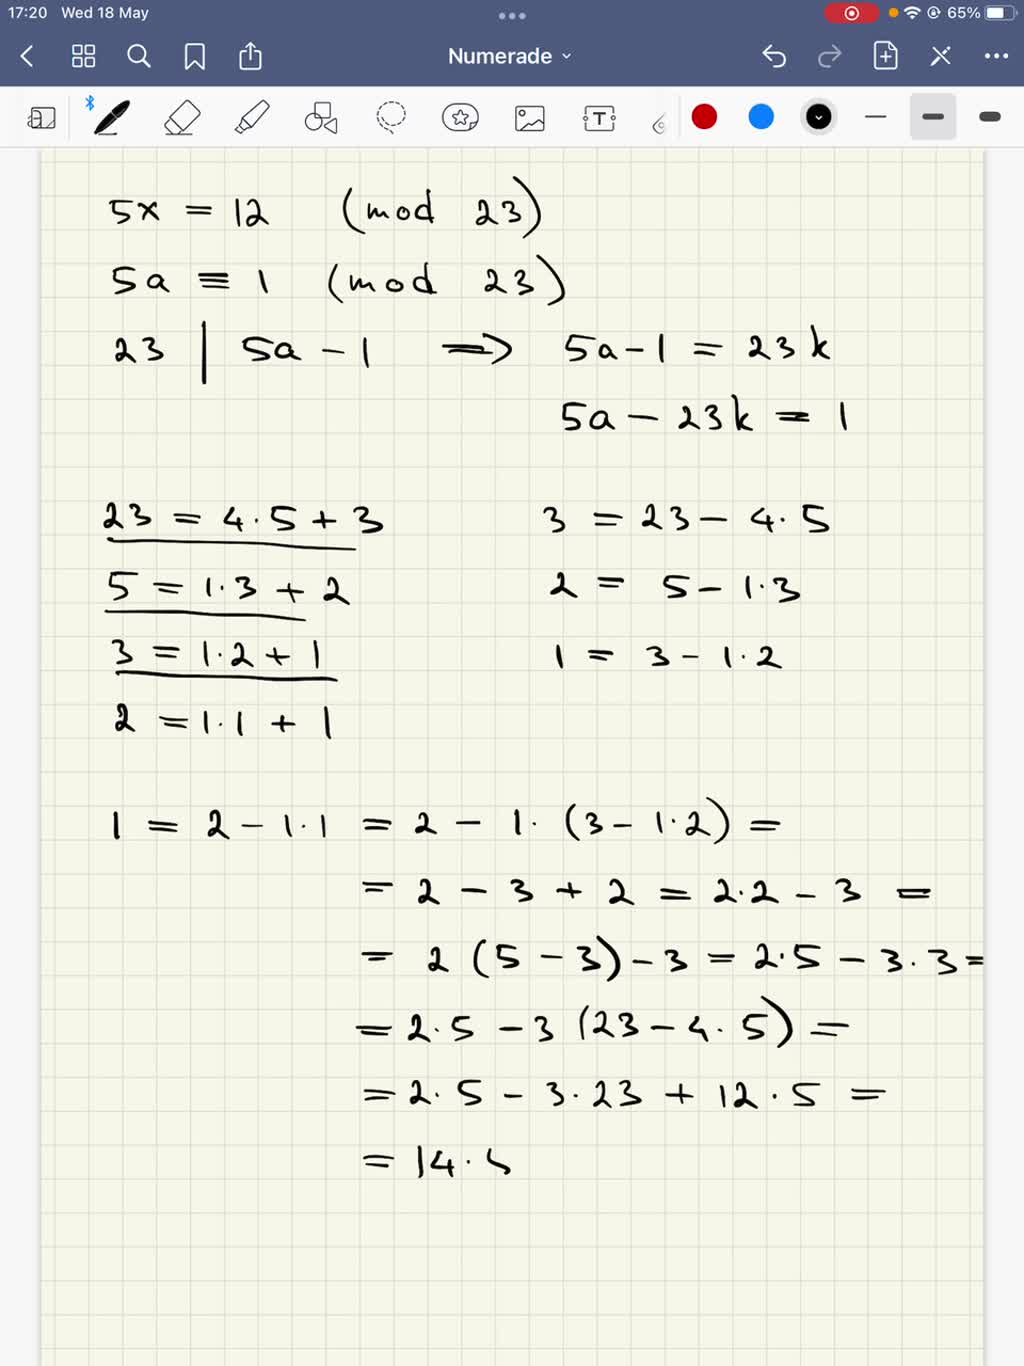 17:20 Wed 18 May 65%
Numerade
5x = 12 (mod 23)
5a ≡ 1 (mod 23)
23 | 5a - 1 ⟹ 5a - 1 = 23k
5a - 23k = 1
23 = 4·5 + 3 3 = 23 - 4·5
5 = 1·3 + 2 2 = 5 - 1·3
3 = 1·2 + 1 1 = 3 - 1·2
2 = 1·1 + 1
1 = 2 - 1·1 = 2 - 1·(3 - 1·2) =
= 2 - 3 + 2 = 2·2 - 3 =
= 2(5 - 3) - 3 = 2·5 - 3·3 =
= 2·5 - 3(23 - 4·5) =
= 2·5 - 3·23 + 12·5 =
= 14·